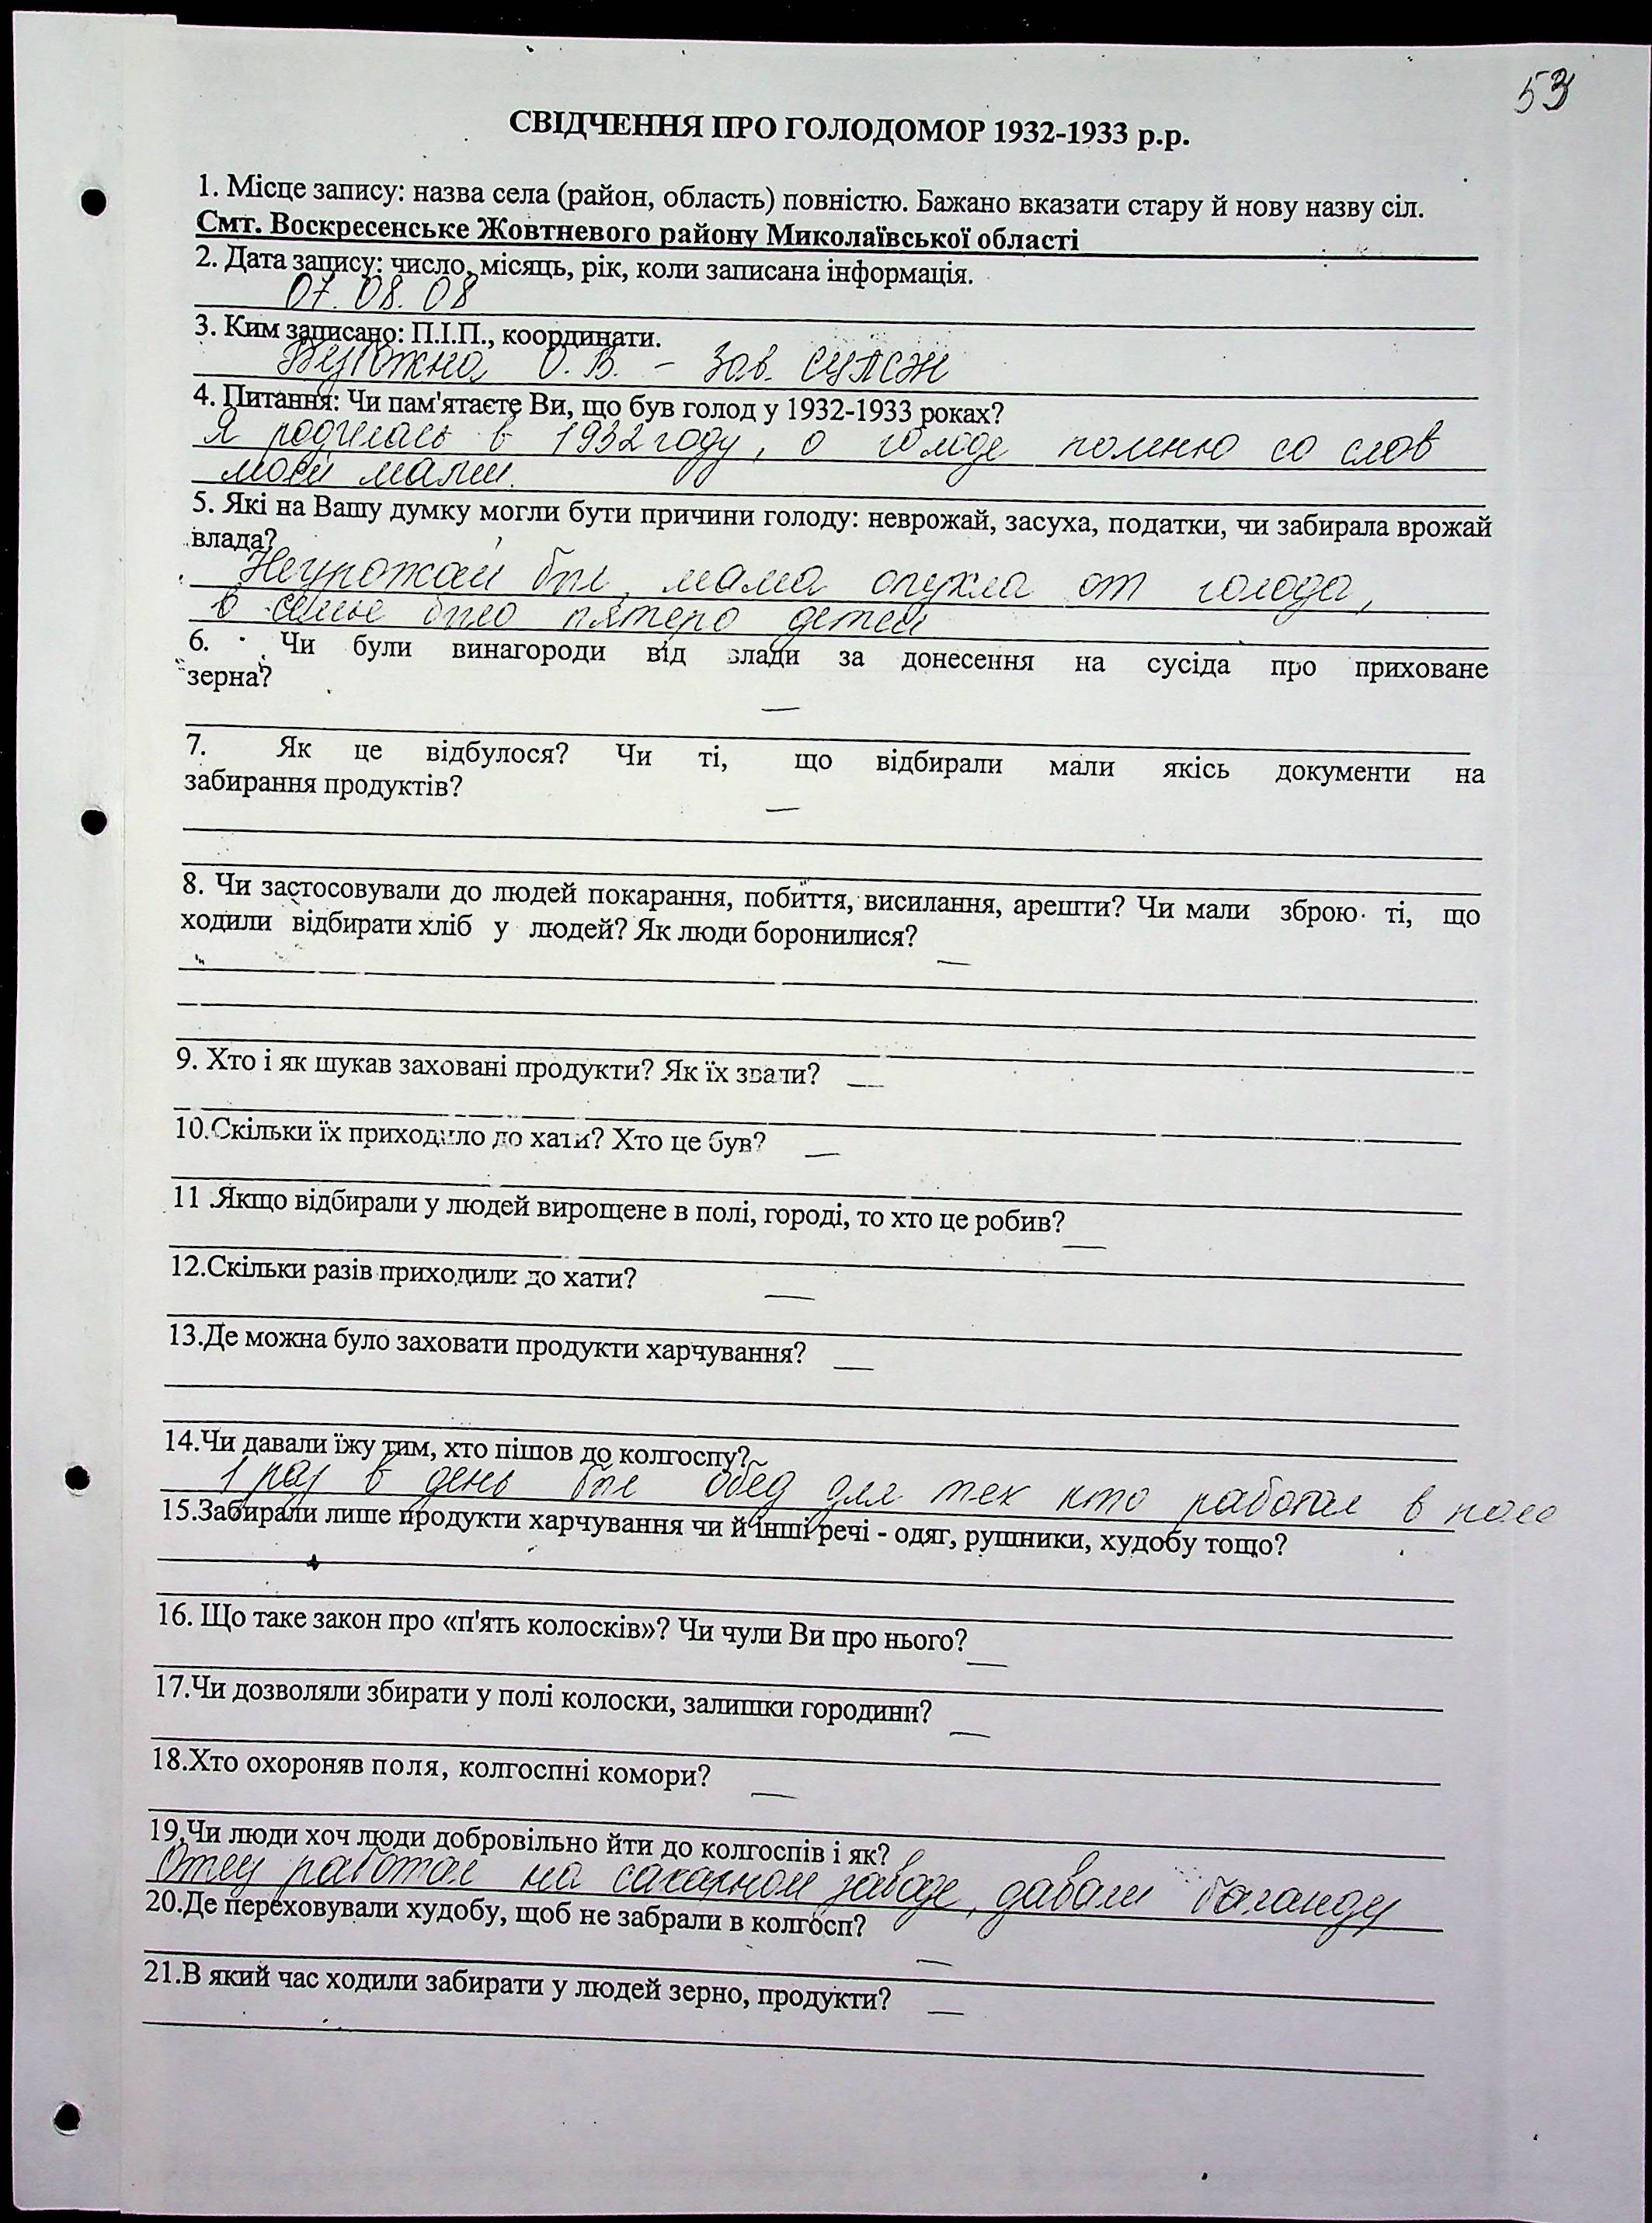 53
СВІДЧЕННЯ ПРО ГОЛОДОМОР 1932-1933 р.р.
1. Місце запису: назва села (район, область) повністю. Бажано вказати стару й нову назву сіл.
Смт. Воскресенське Жовтневого району Миколаївської області
2. Дата запису: число, місяць, рік, коли записана інформація.
07.08.08
3. Ким записано: П.І.П., координати.
О. В. - Зав.
4. Питання: Чи пам'ятаєте Ви, що був голод у 1932-1933 роках?
Я родилась в 1932 году, о голоде помню со слов
моей мамы.
5. Які на Вашу думку могли бути причини голоду: неврожай, засуха, податки, чи забирала врожай
влада?
Неурожай был, мама опухла от голода,
в семье было пятеро детей
6. Чи були винагороди від влади за донесення на сусіда про приховане
зерна?
—
7. Як це відбулося? Чи ті, що відбирали мали якісь документи на
забирання продуктів?
—
8. Чи застосовували до людей покарання, побиття, висилання, арешти? Чи мали зброю ті, що
ходили відбирати хліб у людей? Як люди боронилися? —
9. Хто і як шукав заховані продукти? Як їх звали? —
10.Скільки їх приходило до хати? Хто це був? —
11 .Якщо відбирали у людей вирощене в полі, городі, то хто це робив? —
12.Скільки разів приходили до хати? —
13.Де можна було заховати продукти харчування? —
14.Чи давали їжу тим, хто пішов до колгоспу?
1 раз в день был обед для тех кто работал в поле
15.Забирали лише продукти харчування чи й інші речі - одяг, рушники, худобу тощо?
16. Що таке закон про «п'ять колосків»? Чи чули Ви про нього? —
17.Чи дозволяли збирати у полі колоски, залишки городини? —
18.Хто охороняв поля, колгоспні комори? —
19.Чи люди хоч люди добровільно йти до колгоспів і як?
Отец работал на сахарном заводе, давали баланду
20.Де переховували худобу, щоб не забрали в колгосп? —
21.В який час ходили забирати у людей зерно, продукти? —